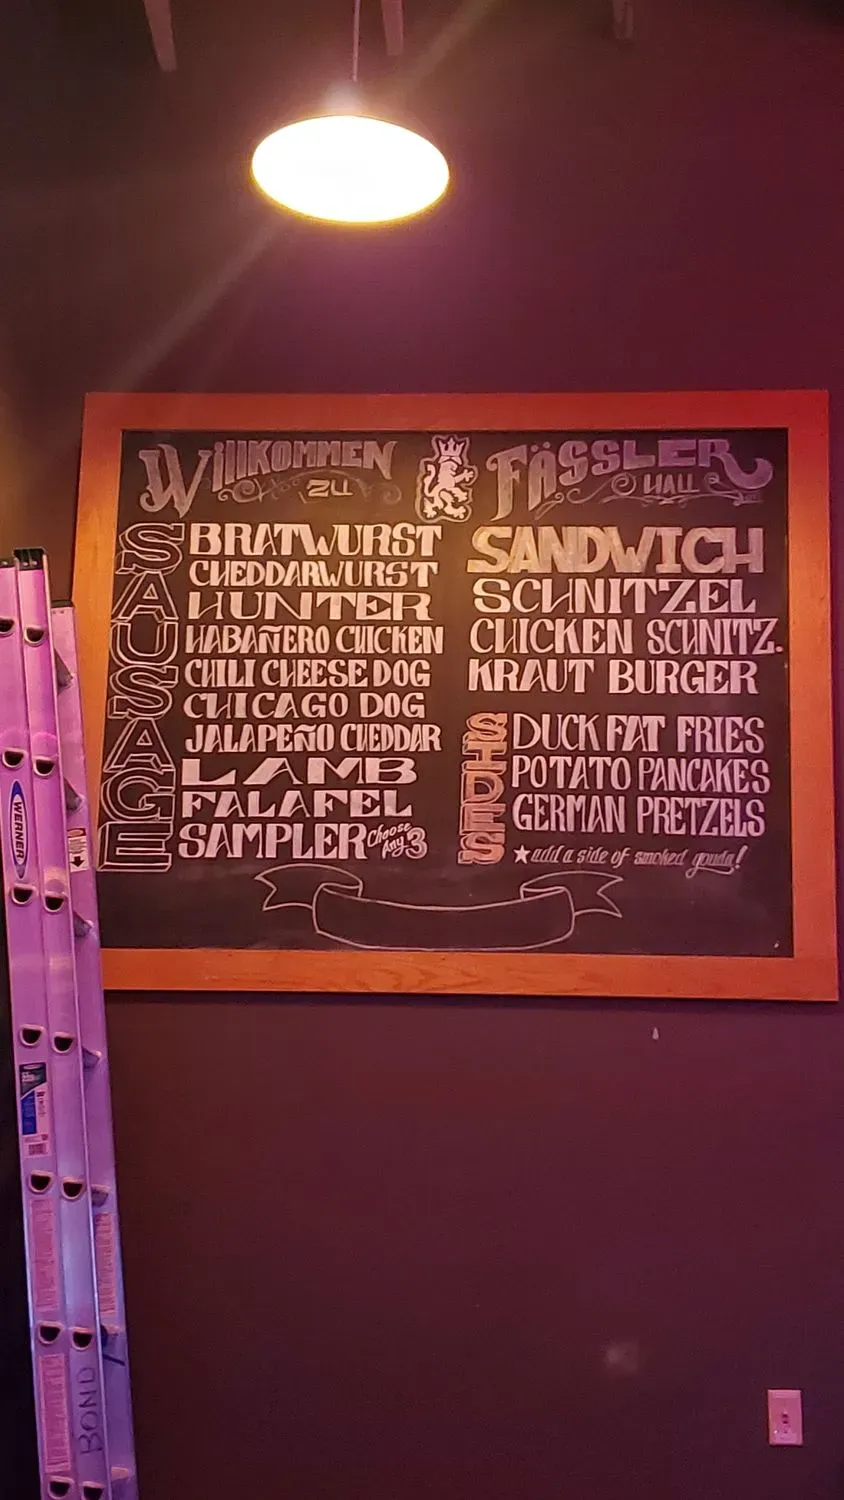 Willkommen
zu
Fässler
Hall
SAUSAGE
BRATWURST
CHEDDARWURST
HUNTER
HABAÑERO CHICKEN
CHILI CHEESE DOG
CHICAGO DOG
JALAPEÑO CHEDDAR
LAMB
FALAFEL
SAMPLER Choose Any 3
SANDWICH
SCHNITZEL
CHICKEN SCHNITZ.
KRAUT BURGER
SIDES
DUCK FAT FRIES
POTATO PANCAKES
GERMAN PRETZELS
★ add a side of smoked gouda!
WERNER
BOND